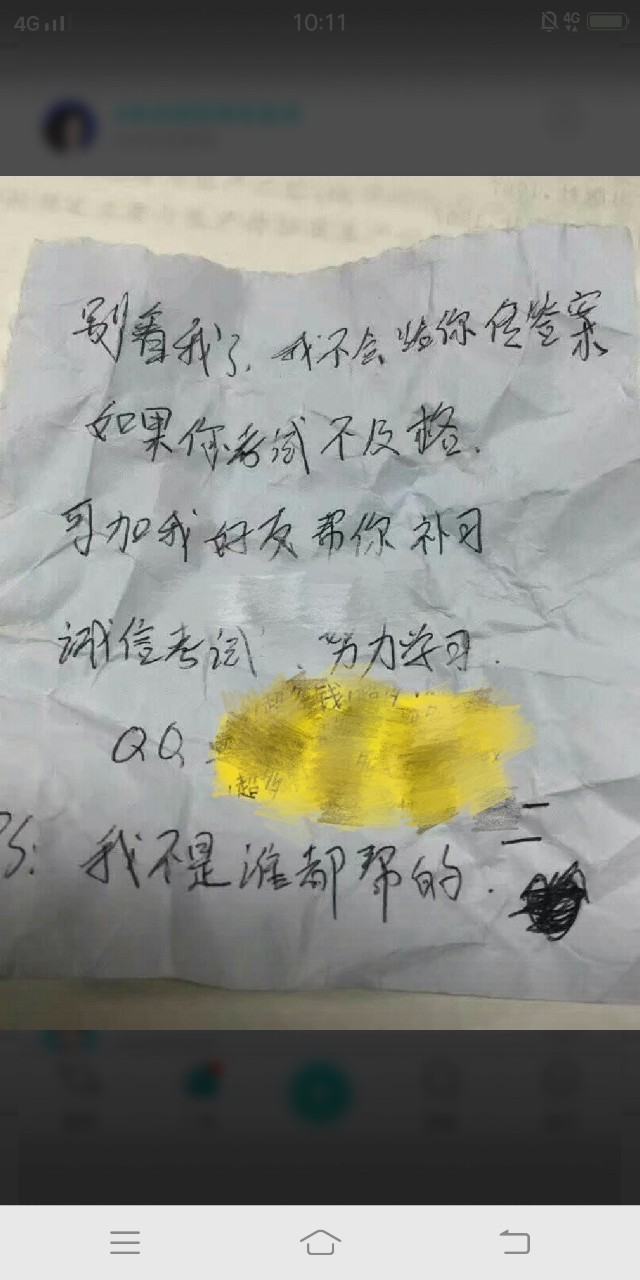 4G
10:11
4G
别看我了,我不会给你传答案
如果你考试不及格.
可加我好友帮你补习
诚信考试、努力学习.
QQ
PS: 我不是谁都帮的.